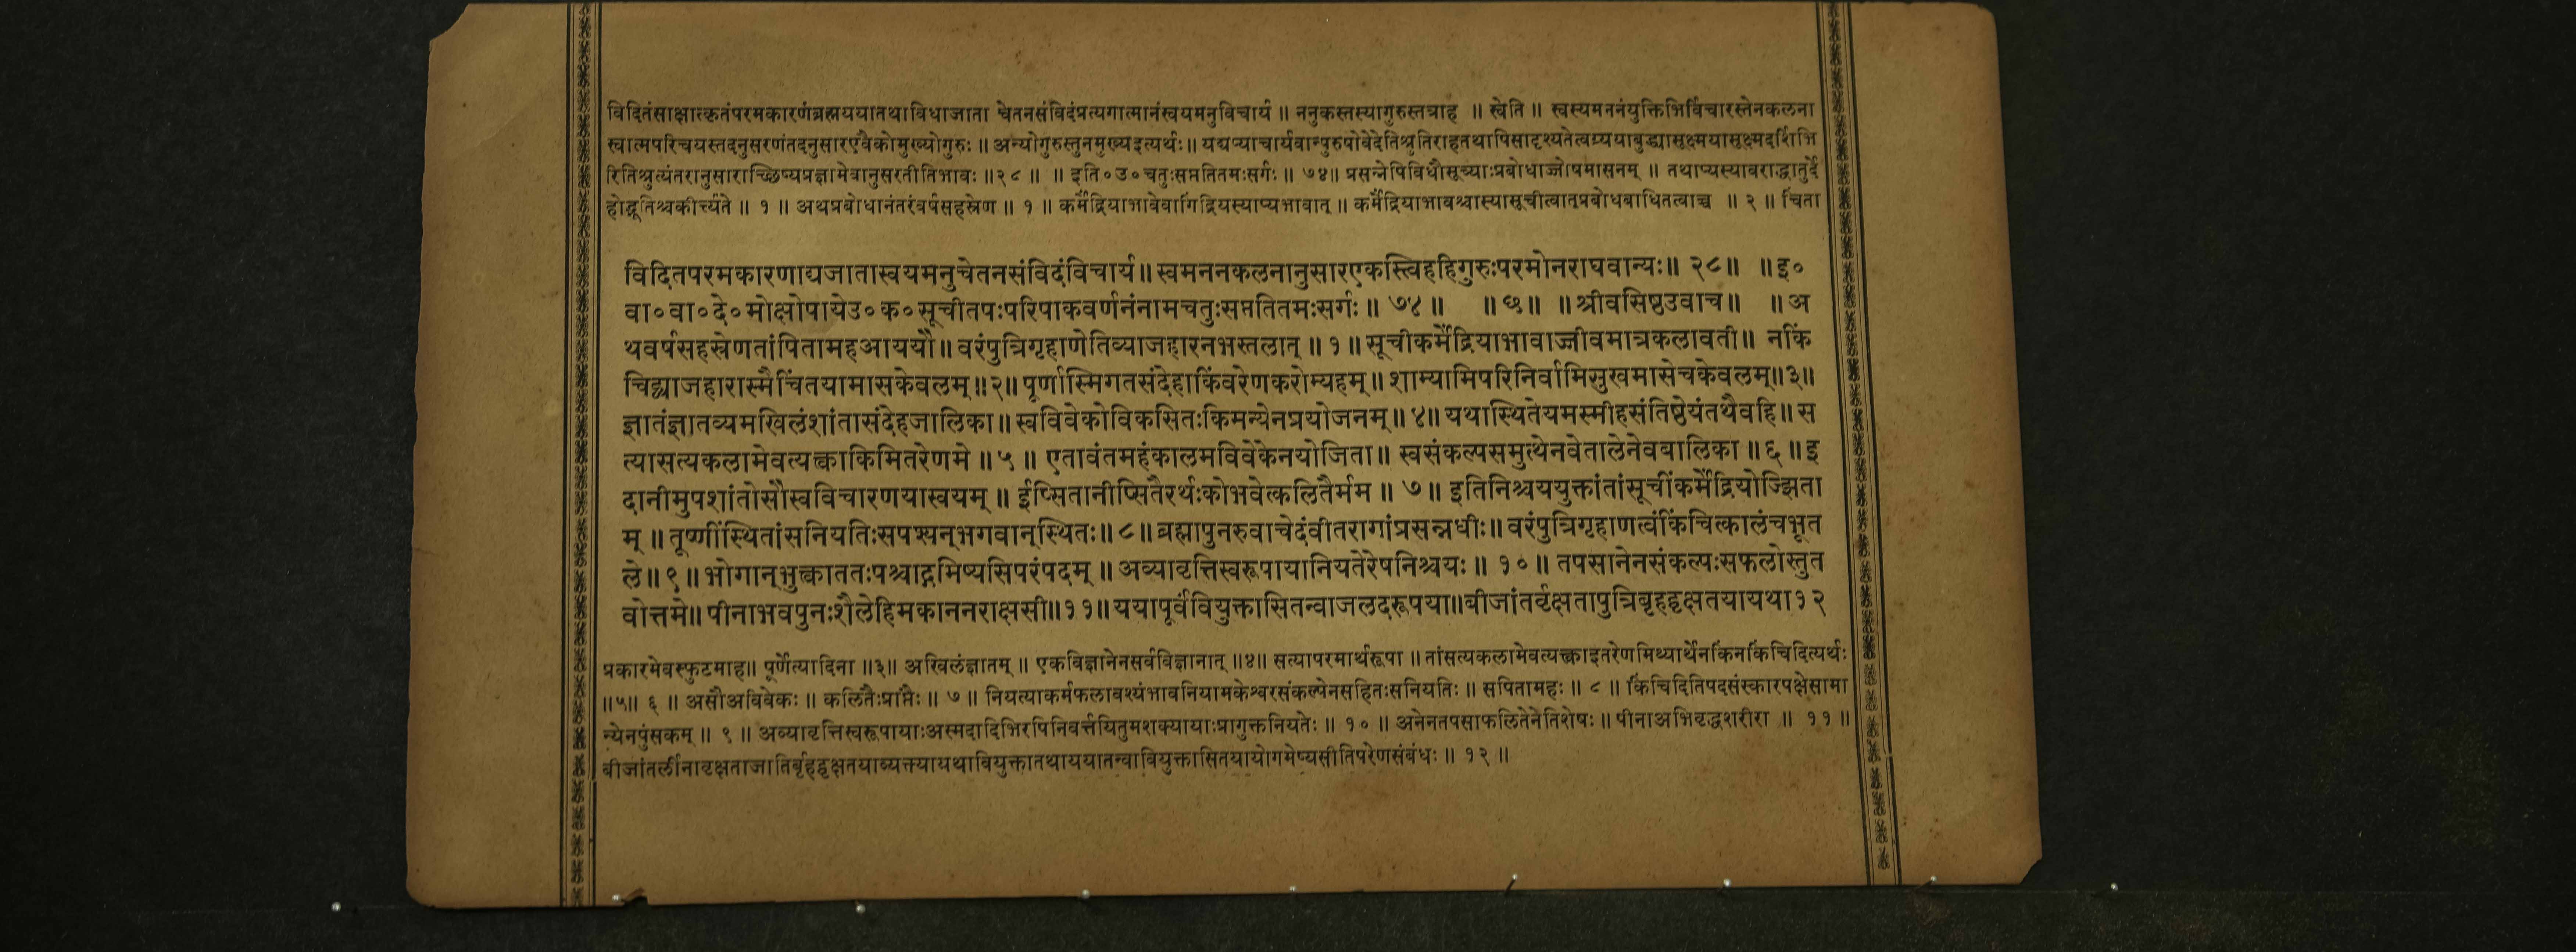 विदितंसाक्षात्कृतंपरमकारणंब्रह्मययातथाविधाजाता चेतनसंविदंप्रत्यगात्मानंस्वयमनुविचार्य ॥ ननुकस्तस्यागुरुस्तत्राह ॥ स्वेति ॥ स्वस्यमननंयुक्तिभिर्विचारस्तेनकलना
स्वात्मपरिचयस्तदनुसरणंतदनुसारएवैकोमुख्योगुरुः ॥ अन्योगुरुस्तुनमुख्यइत्यर्थः ॥ यद्यप्याचार्यवान्पुरुषोवेदेतिश्रुतिराहतथापिसादृश्यतेत्वग्र्ययाबुद्ध्यासूक्ष्मयासूक्ष्मदर्शिभि
रितिश्रुत्यंतरानुसाराच्छिष्यप्रज्ञामेवानुसरतीतिभावः ॥२८॥ ॥ इति०उ०चतुःसप्ततितमःसर्गः ॥ ७४॥ प्रसन्नेपिविधौसूच्याःप्रबोधाज्जोषमासनम् ॥ तथाप्यस्यावराद्धातुर्दे
होद्भूतिश्चकीर्त्यते ॥ १ ॥ अथप्रबोधानंतरंवर्षसहस्रेण ॥ १ ॥ कर्मेंद्रियाभावेवागिंद्रियस्याप्यभावात् ॥ कर्मेंद्रियाभावश्चास्यासूचीत्वात्प्रबोधबाधितत्वाच्च ॥ २ ॥ चिंता
विदितपरमकारणाद्यजातास्वयमनुचेतनसंविदंविचार्य ॥ स्वमननकलनानुसारएकस्त्विहहिगुरुःपरमोनराघवान्यः ॥ २८॥ ॥ इ०
वा०वा०दे०मोक्षोपायेउ०क०सूचीतपःपरिपाकवर्णनंनामचतुःसप्ततितमःसर्गः ॥ ७४ ॥ ॥ ७ ॥ ॥ श्रीवसिष्ठउवाच ॥ ॥ अ
थवर्षसहस्रेणतांपितामहआययौ ॥ वरंपुत्रिगृहाणेतिव्याजहारनभस्तलात् ॥ १ ॥ सूचीकर्मेंद्रियाभावाज्जीवमात्रकलावती ॥ नकिं
चिद्व्याजहारास्मैचिंतयामासकेवलम् ॥२॥ पूर्णास्मिगतसंदेहाकिंवरेणकरोम्यहम् ॥ शाम्यामिपरिनिर्वामिसुखमासेचकेवलम् ॥३॥
ज्ञातंज्ञातव्यमखिलंशांतासंदेहजालिका ॥ स्वविवेकोविकसितःकिमन्येनप्रयोजनम् ॥ ४ ॥ यथास्थितेयमस्मीहसंतिष्ठेयंतथैवहि ॥ स
त्यासत्यकलामेवत्यक्त्वाकिमितरेणमे ॥ ५ ॥ एतावंतमहंकालमविवेकेनयोजिता ॥ स्वसंकल्पसमुत्थेनवेतालेनेवबालिका ॥ ६ ॥ इ
दानीमुपशांतोसौस्वविचारणयास्वयम् ॥ ईप्सितानीप्सितैरर्थःकोभवेत्कलितैर्मम ॥ ७ ॥ इतिनिश्चययुक्तांतांसूचींकर्मेंद्रियोज्झिता
म् ॥ तूष्णींस्थितांसनियतिःसपश्यन्भगवान्स्थितः ॥ ८ ॥ ब्रह्मापुनरुवाचेदंवीतरागांप्रसन्नधीः ॥ वरंपुत्रिगृहाणत्वंकिंचित्कालंचभूत
ले ॥ ९ ॥ भोगान्भुक्त्वाततःपश्चाद्गमिष्यसिपरंपदम् ॥ अव्यावृत्तिस्वरूपायानियतेरेषनिश्चयः ॥ १० ॥ तपसानेनसंकल्पःसफलोस्तुत
वोत्तमे ॥ पीनाभवपुनःशैलेहिमकाननराक्षसी ॥ ११ ॥ ययापूर्वंवियुक्तासितन्वाजलदरूपया ॥ बीजांतर्वृक्षतापुत्रिबृहद्वृक्षतयायथा१२
प्रकारमेवस्फुटमाह ॥ पूर्णेत्यादिना ॥३॥ अखिलंज्ञातम् ॥ एकविज्ञानेनसर्वविज्ञानात् ॥४॥ सत्यापरमार्थरूपा ॥ तांसत्यकलामेवत्यक्त्वाइतरेणमिथ्यार्थेनकिंनकिंचिदित्यर्थः
॥५॥ ६ ॥ असौअविवेकः ॥ कलितैःप्राप्तैः ॥ ७ ॥ नियत्याकर्मफलावश्यंभावनियामकेश्वरसंकल्पेनसहितःसनियतिः ॥ सपितामहः ॥ ८ ॥ किंचिदितिपदसंस्कारपक्षेसामा
न्येनपुंसकम् ॥ ९ ॥ अव्यावृत्तिस्वरूपायाःअस्मदादिभिरपिनिवर्त्तयितुमशक्यायाःप्रागुक्तनियतेः ॥ १० ॥ अनेनतपसाफलितेनेतिशेषः ॥ पीनाअभिवृद्धशरीरा ॥ ११ ॥
बीजांतर्लीनावृक्षताजातिर्बृहद्वृक्षतयाव्यक्तयायथावियुक्तातथाययातन्वावियुक्तासितयायोगमेष्यसीतिपरेणसंबंधः ॥ १२ ॥